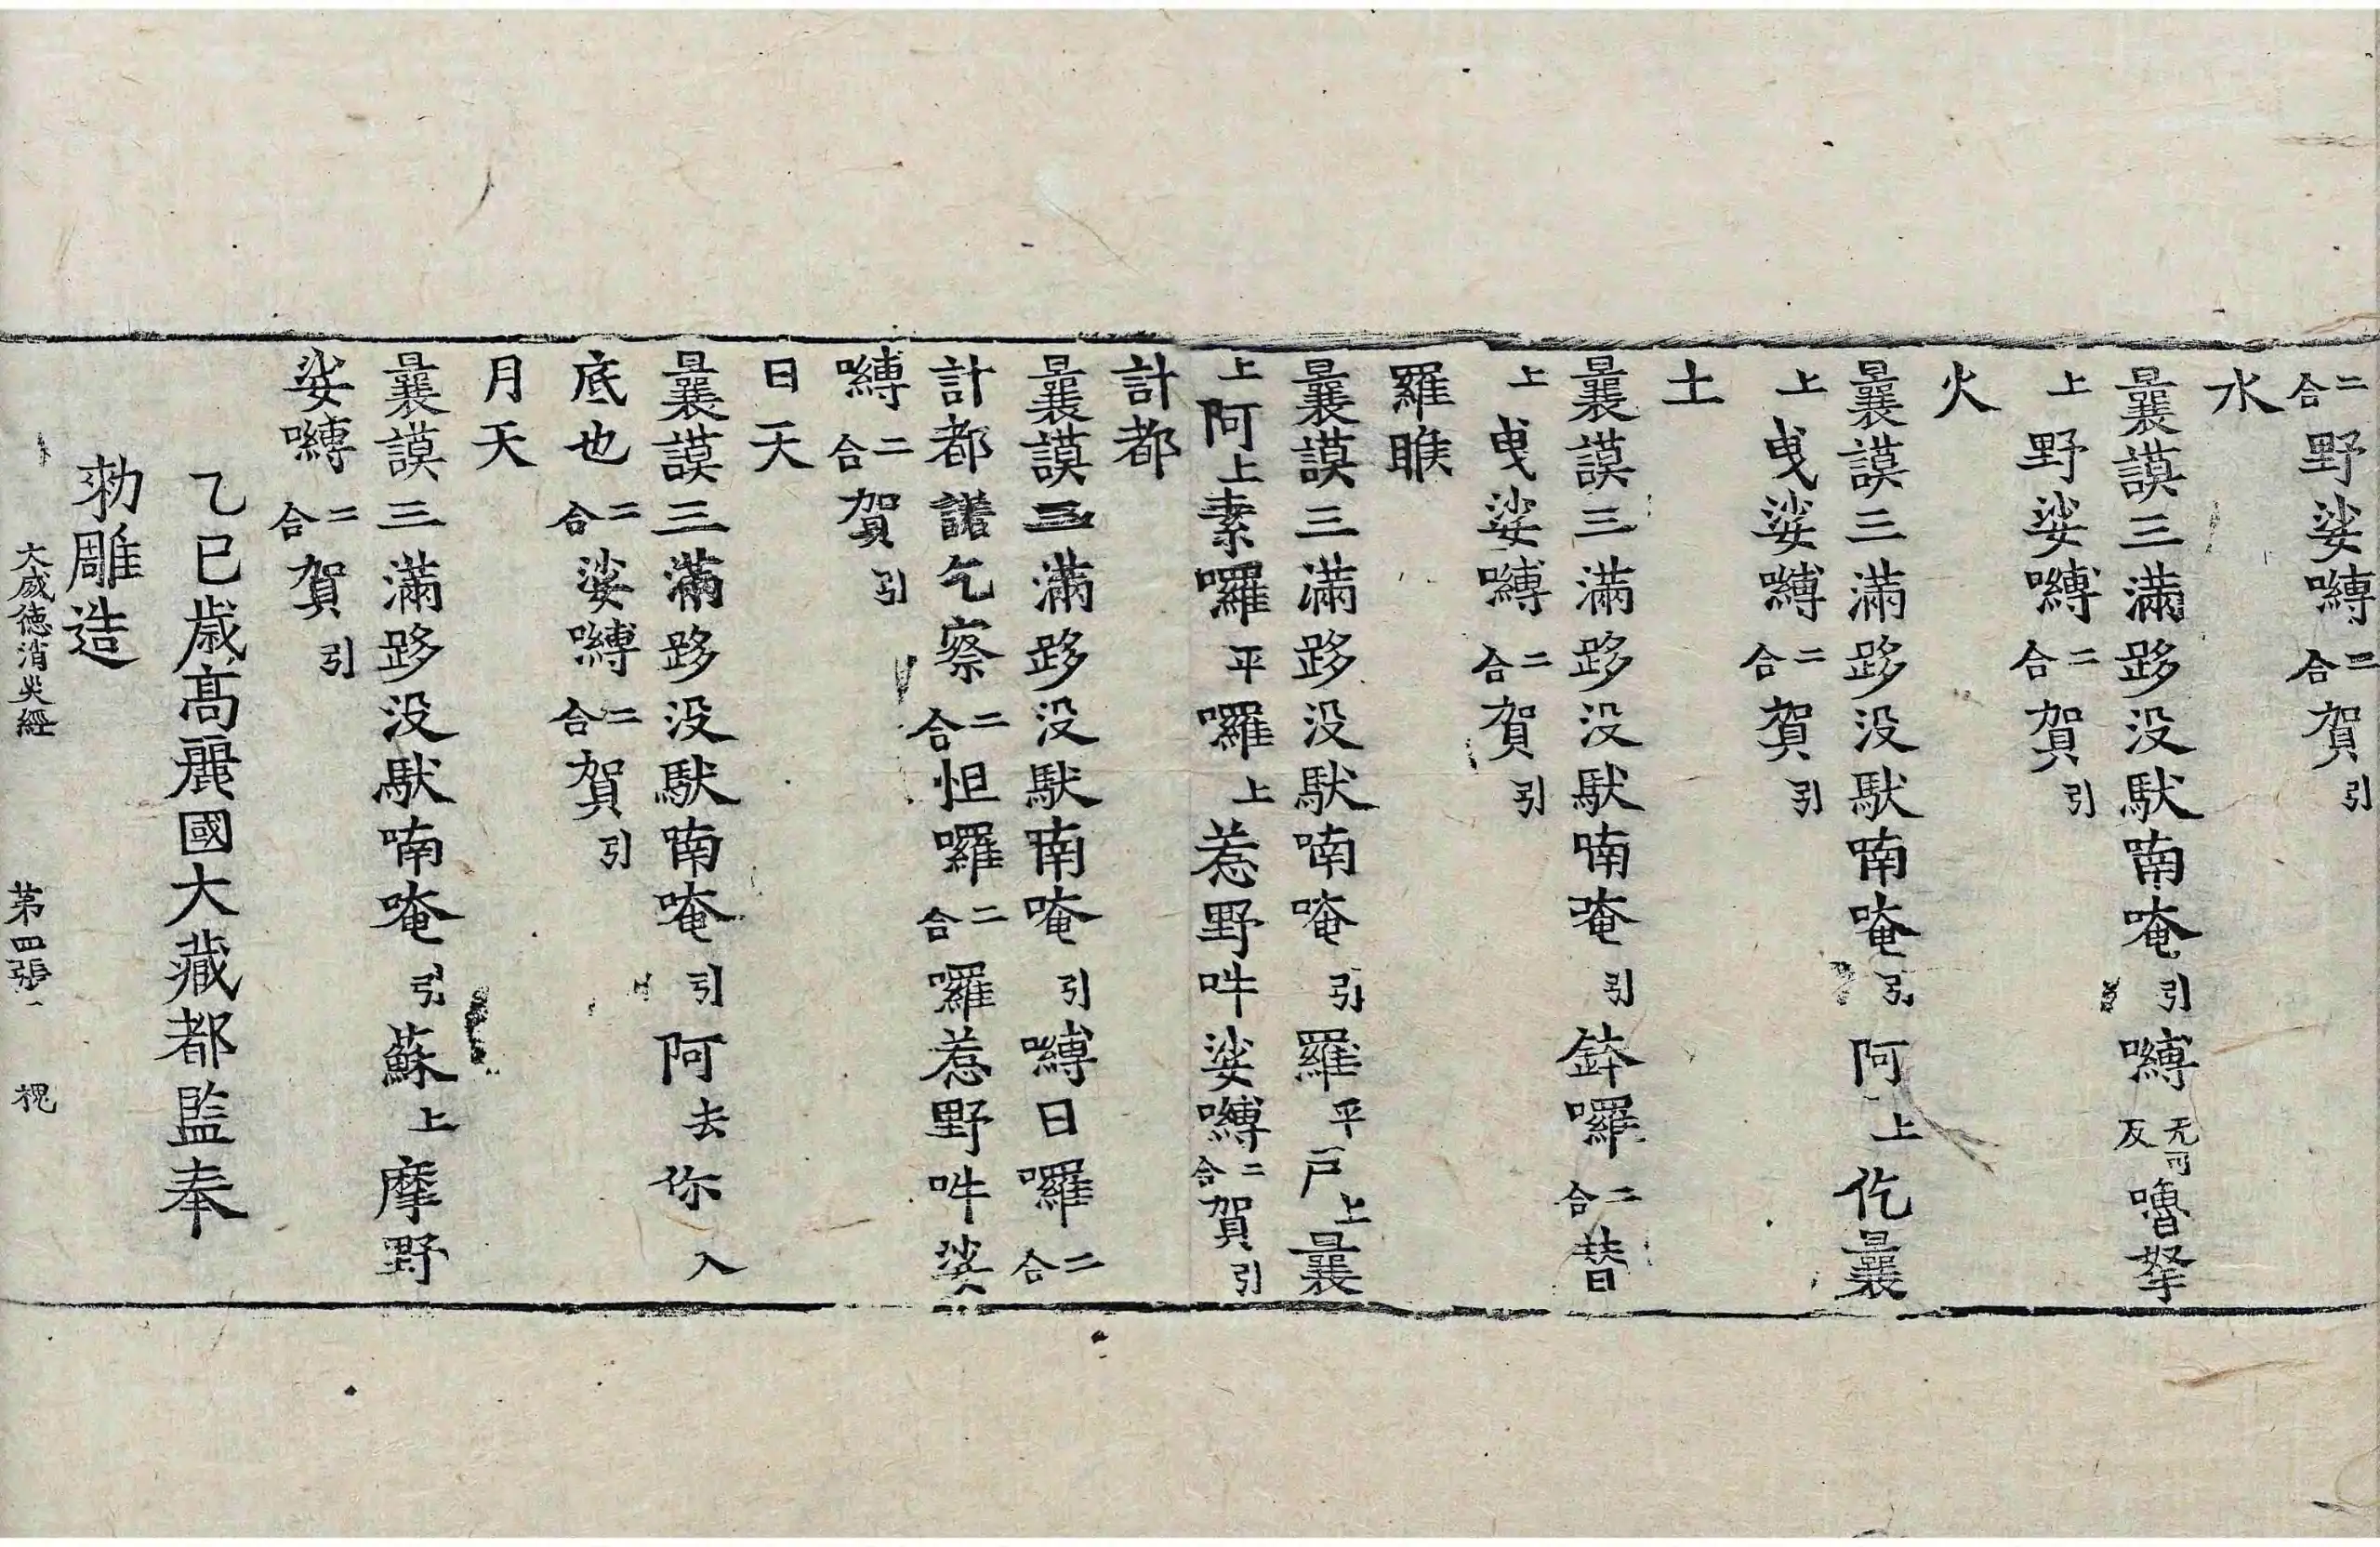 二合野娑嚩二合賀引
水
曩謨三滿跢没馱喃唵引嚩无可反嚕拏
上野娑嚩二合賀引
火
曩謨三滿跢没馱喃唵引阿上仡曩
上曳娑嚩二合賀引
土
曩謨三滿跢没馱喃唵引鉢囉二合替
上曳娑嚩二合賀引
羅睺
曩謨三滿跢没馱喃唵引羅平戸上曩
上阿上素囉平囉上惹野吽娑嚩二合賀引
計都
曩謨三滿跢没馱喃唵引嚩日囉二合
計都諾乞察二合怛囉二合囉惹野吽娑
嚩二合賀引
日天
曩謨三滿跢没馱喃唵引阿去你入
底也二合娑嚩二合賀引
月天
曩謨三滿跢没馱喃唵引蘇上摩野
娑嚩二合賀引
乙巳歳髙麗國大藏都監奉
勑雕造
大威徳消灾經 第四張 槐